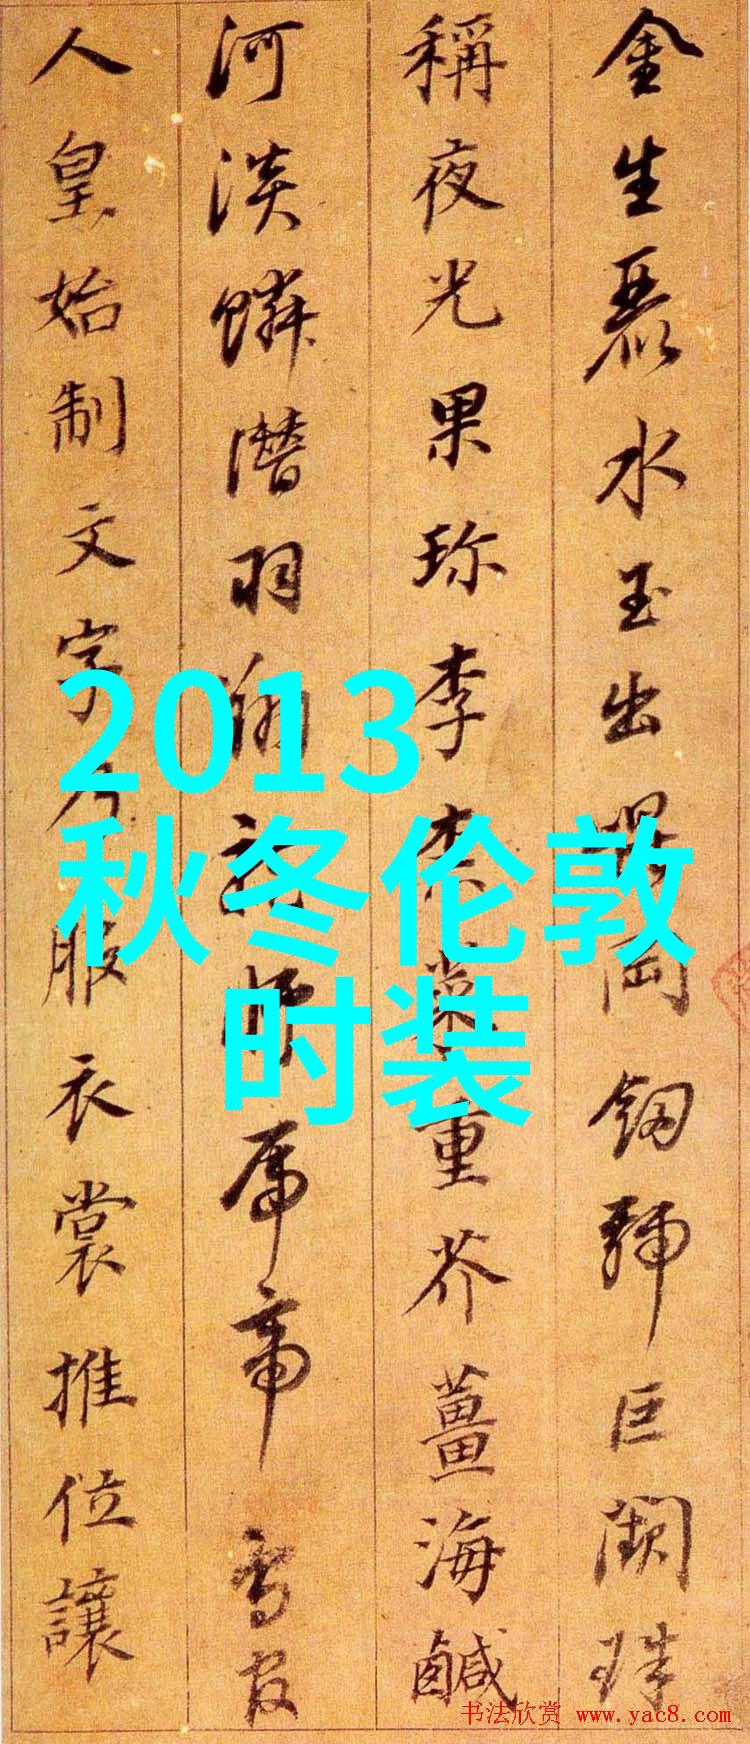 金生麗水玉出崐岡劒號巨闕珠
稱夜光果珍李柰菜重芥薑海鹹
河淡鱗潛羽翔龍師帝鳥官
人皇始制文字乃服衣裳推位讓
2013
秋冬伦敦
时装
书法欣赏 www.yac8.com